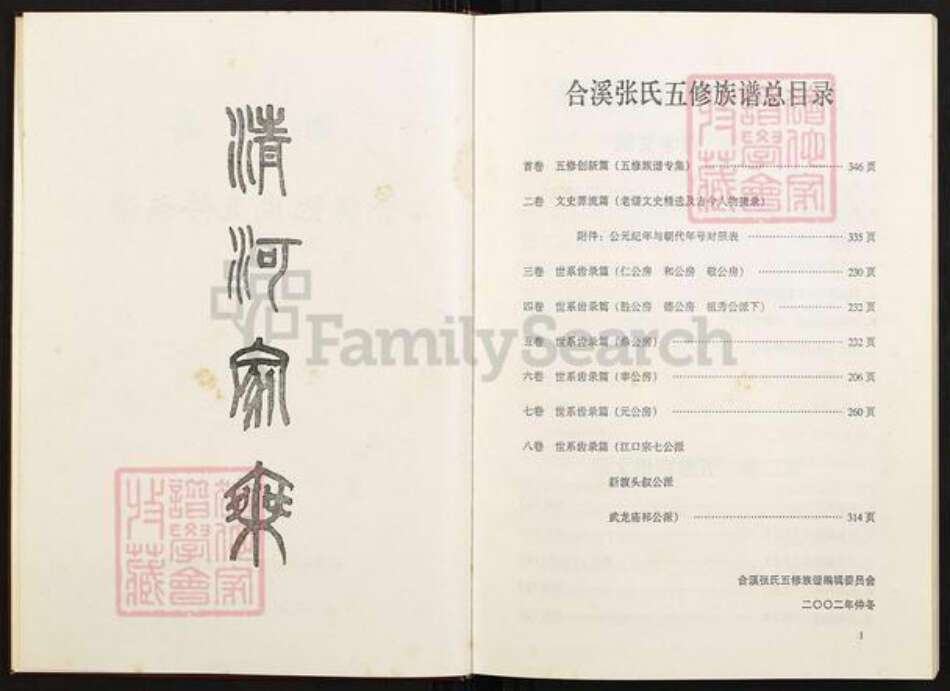 清河家乘
合溪张氏五修族谱总目录
首卷 五修创新篇（五修族谱专集） 346页
二卷 文史源流篇（老谱文史精选及古今人物录）
附件：公元纪年与朝代年号对照表 335页
三卷 世系齿录篇（仁公房 和公房 敬公房） 230页
四卷 世系齿录篇（胜公房 德公房 祖秀公派下） 232页
五卷 世系齿录篇（公房） 232页
六卷 世系齿录篇（公房） 206页
七卷 世系齿录篇（元公房） 260页
八卷 世系齿录篇（江口宗七公派
新渡头叙公派
武龙庙邦公派） 314页
合溪张氏五修族谱编辑委员会
二〇〇二年仲冬
1
FamilySearch
譜學會
收藏